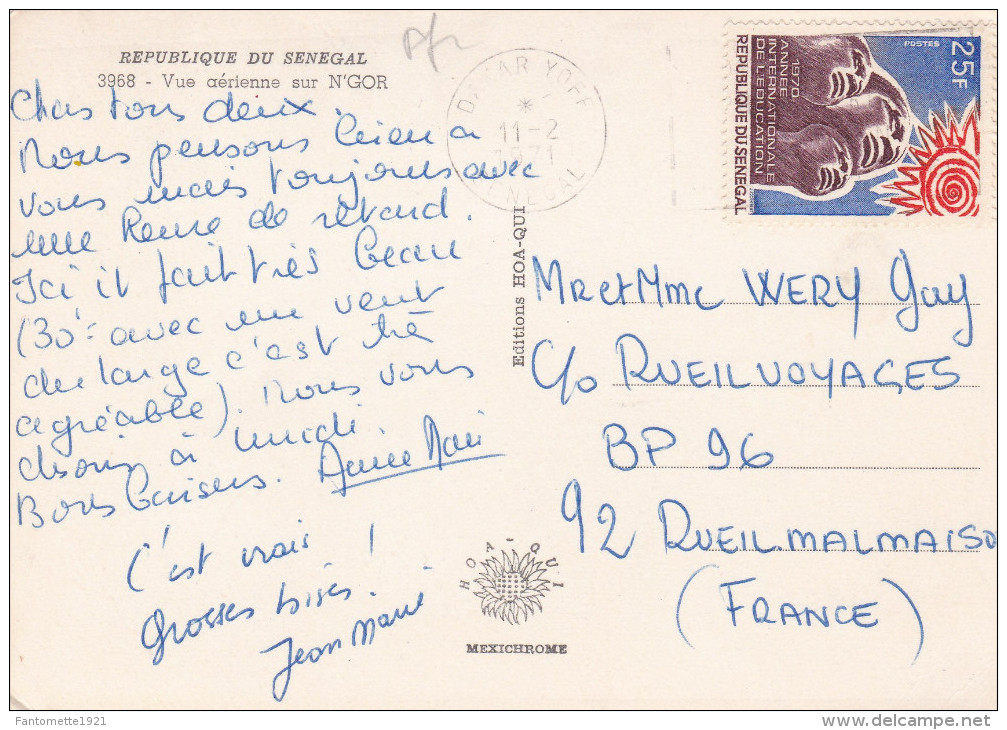 REPUBLIQUE DU SENEGAL
3968 - Vue aérienne sur N'GOR
Chas tous deux.
Nous pensons bien a
vous mais toujours avec
une heure de retard.
Ici il fait très beau
(30° avec un vent
du large c'est trè
agréable). Nous vous
disons à lundi.
Bons baisers. Annie Marie
C'est vrais !
Grosses bises.
Jean Marie
DAKAR YOFF
11-2
1971
SENEGAL
25F
POSTES
1970
ANNÉE
INTERNATIONALE
DE L'ÉDUCATION
REPUBLIQUE DU SENEGAL
Editions HOA-QUI
Mr et Mme WERY Guy
c/o RUEIL VOYAGES
BP 96
92 RUEIL.MALMAISO
(FRANCE)
HOA-QUI
MEXICHROME
Fantomette1921